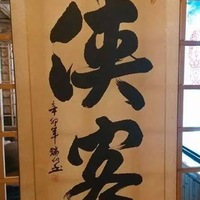 侠客
辛卯年